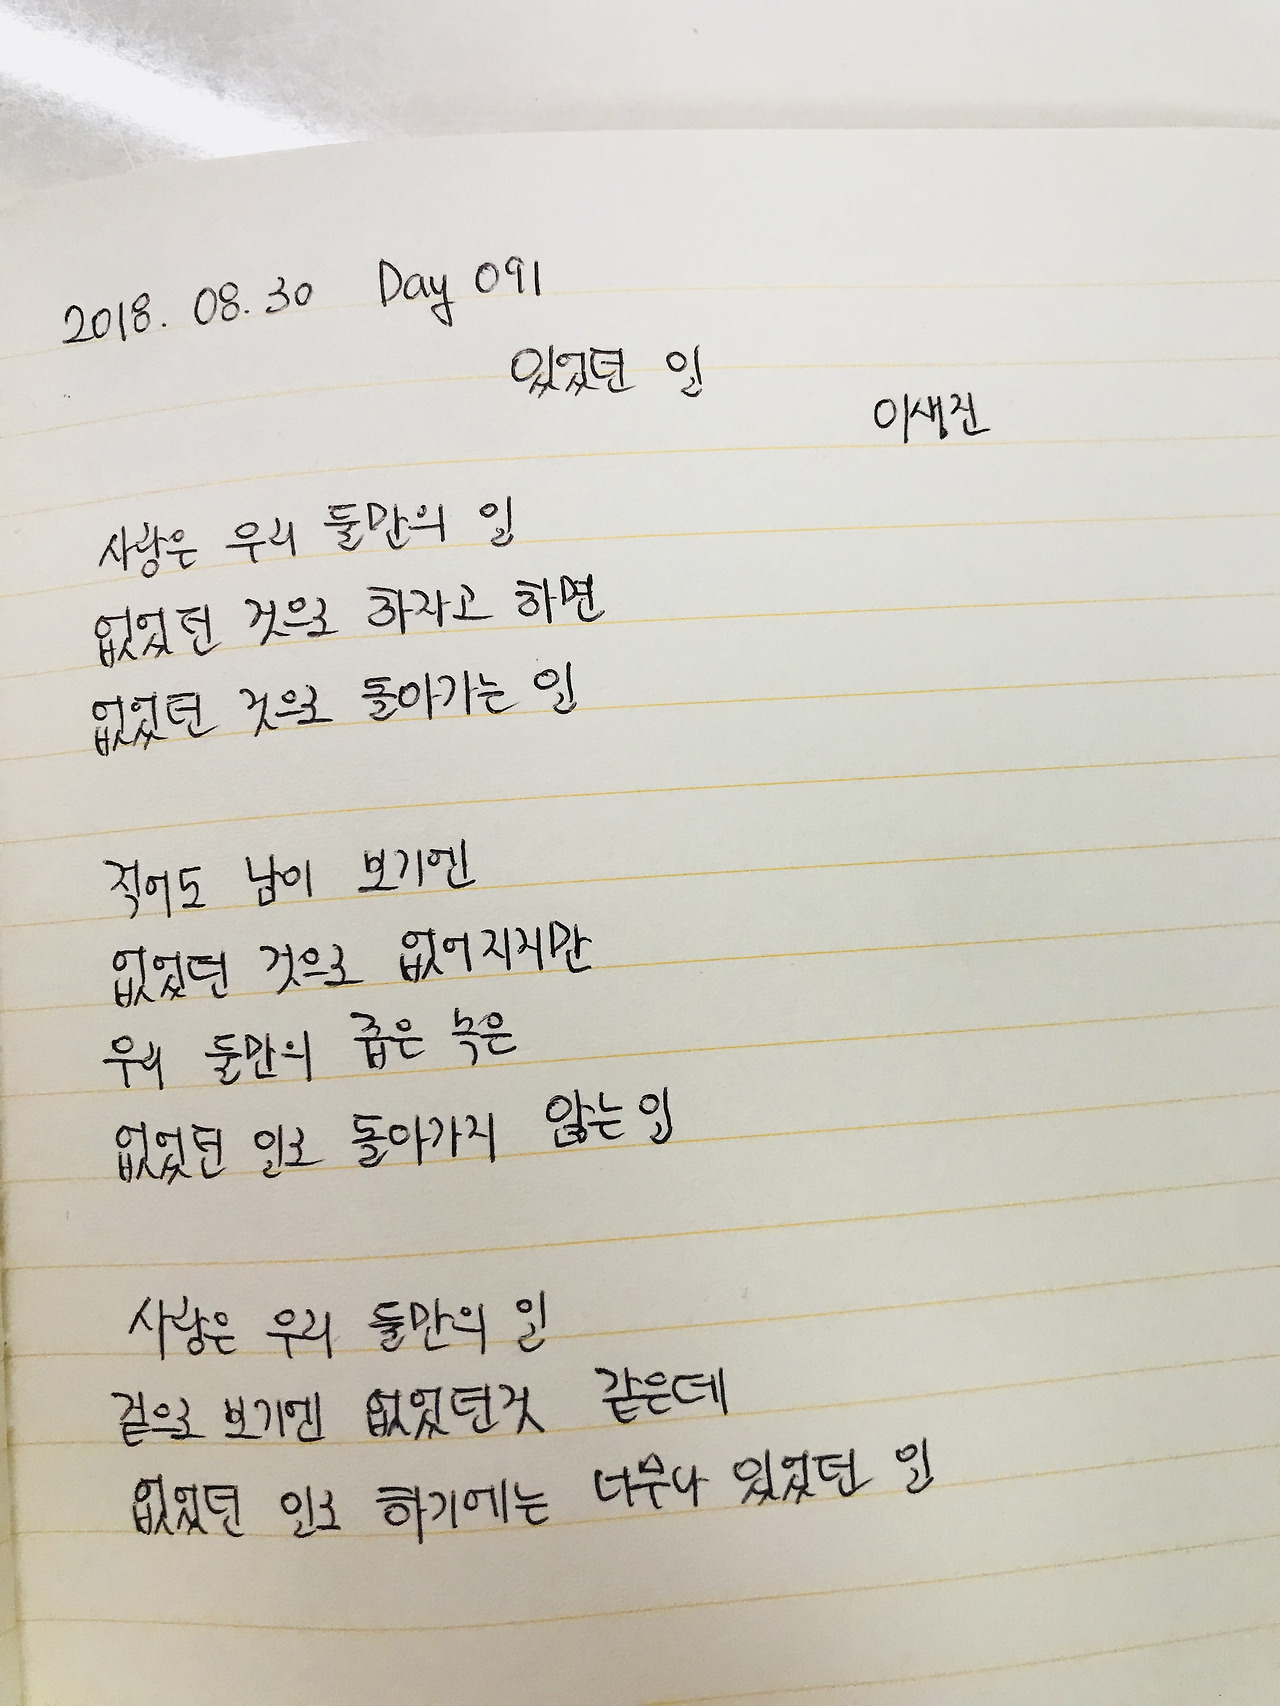 2018. 08. 30 Day 091
있었던 일
이생진
사랑은 우리 둘만의 일
없었던 것으로 하자고 하면
없었던 것으로 돌아가는 일
적어도 남이 보기엔
없었던 것으로 없어지지만
우리 둘만의 좁은 속은
없었던 일로 돌아가지 않는 일
사랑은 우리 둘만의 일
겉으로 보기엔 없었던것 같은데
없었던 일로 하기에는 너무나 있었던 일